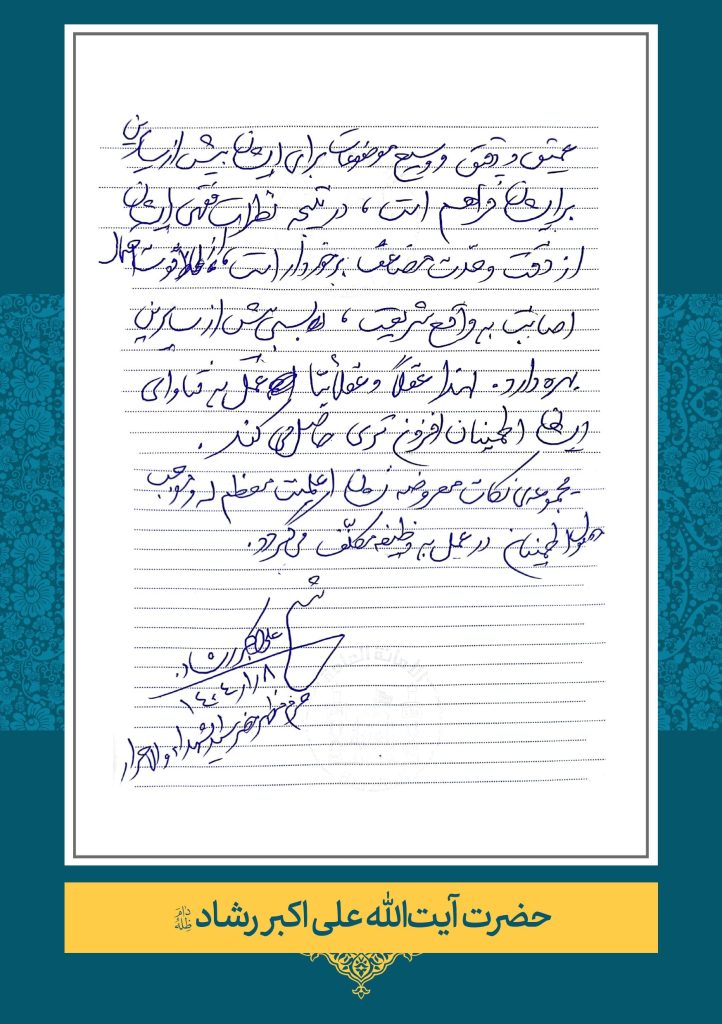 عمیق و دقیق و وسیع موضوعات برای ایشان بیش از سایرین
برای ایشان فراهم است، در نتیجه نظرات فقهی ایشان
از دقت و حدت مضاعف برخوردار است، قوت احتمال
اصابت به واقع شریعت، بیش از سایرین
بهره دارد. لهذا عقلاً و عقلائیاً عمل به فتاوای
ایشان اطمینان افزون تری حاصل می کند.
- مجموعه‌ی نکات معروضه اعلمیت معظم له و موجب
اطمینان در عمل به وظیفه مکلّف می گردد.
علی اکبر رشاد
۱۴۰۴
حضرت سیدالشهداء والاحرار
حضرت آیت‌الله علی اکبر رشاد دامَ ظِلُّهُ